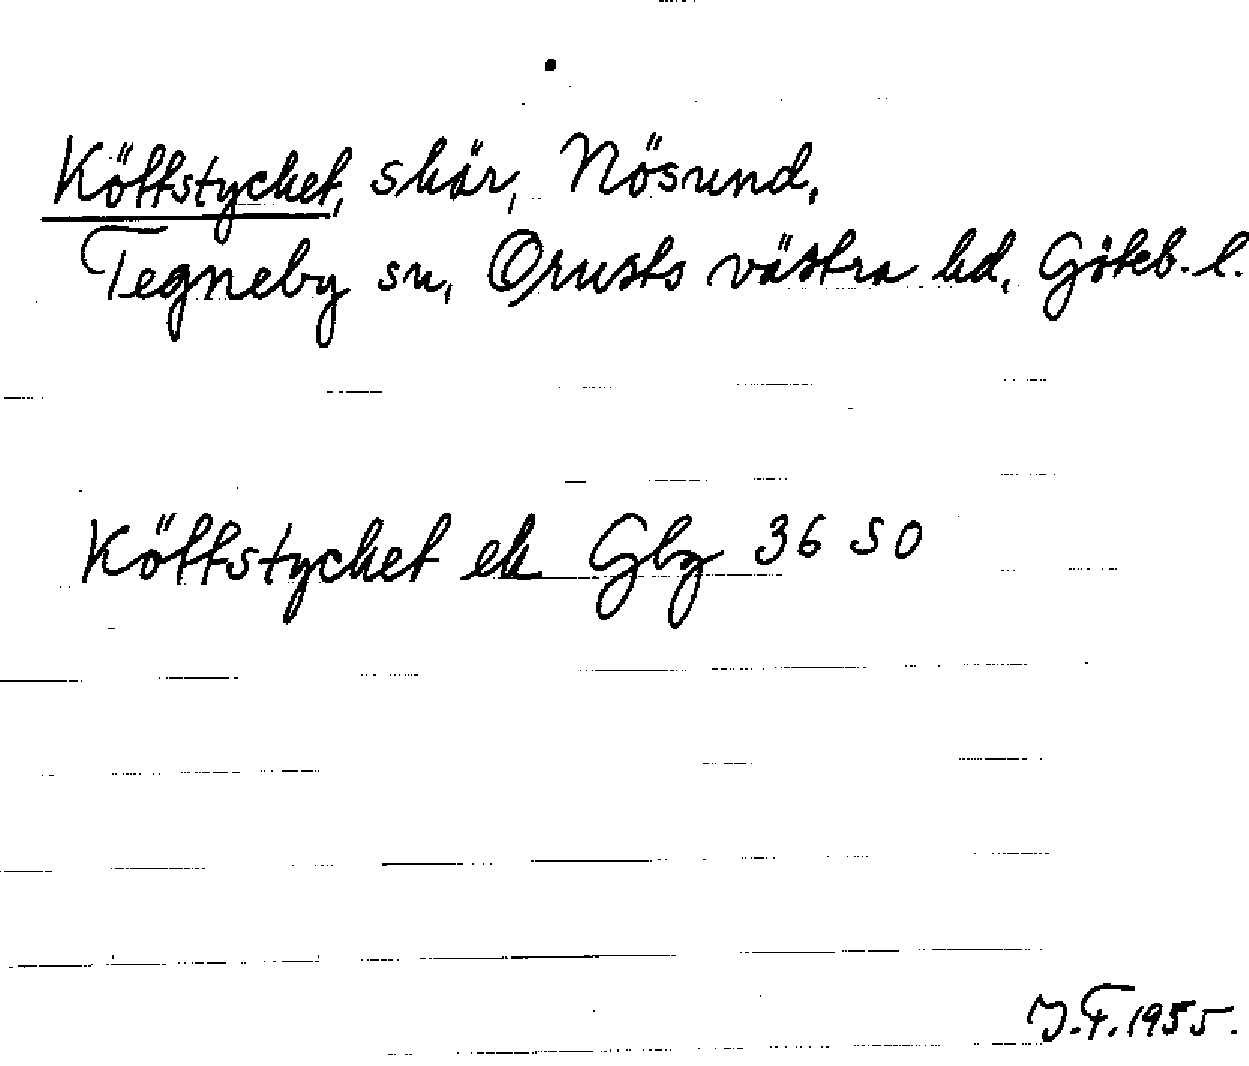 Köttstycket, skär, Nösund,
Tegneby sn, Orusts västra hd, Göteb. l.
Köttstycket ek Gbg 36 SO
J.F. 1955.